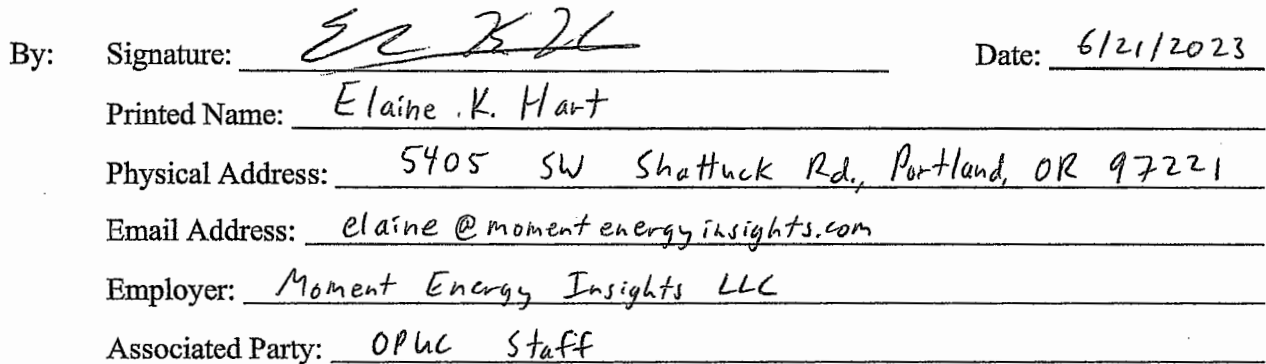 By: Signature: Date: 6/21/2023
Printed Name: Elaine K. Hart
Physical Address: 5405 SW Shattuck Rd., Portland, OR 97221
Email Address: elaine@momentenergyinsights.com
Employer: Moment Energy Insights LLC
Associated Party: OPUC Staff